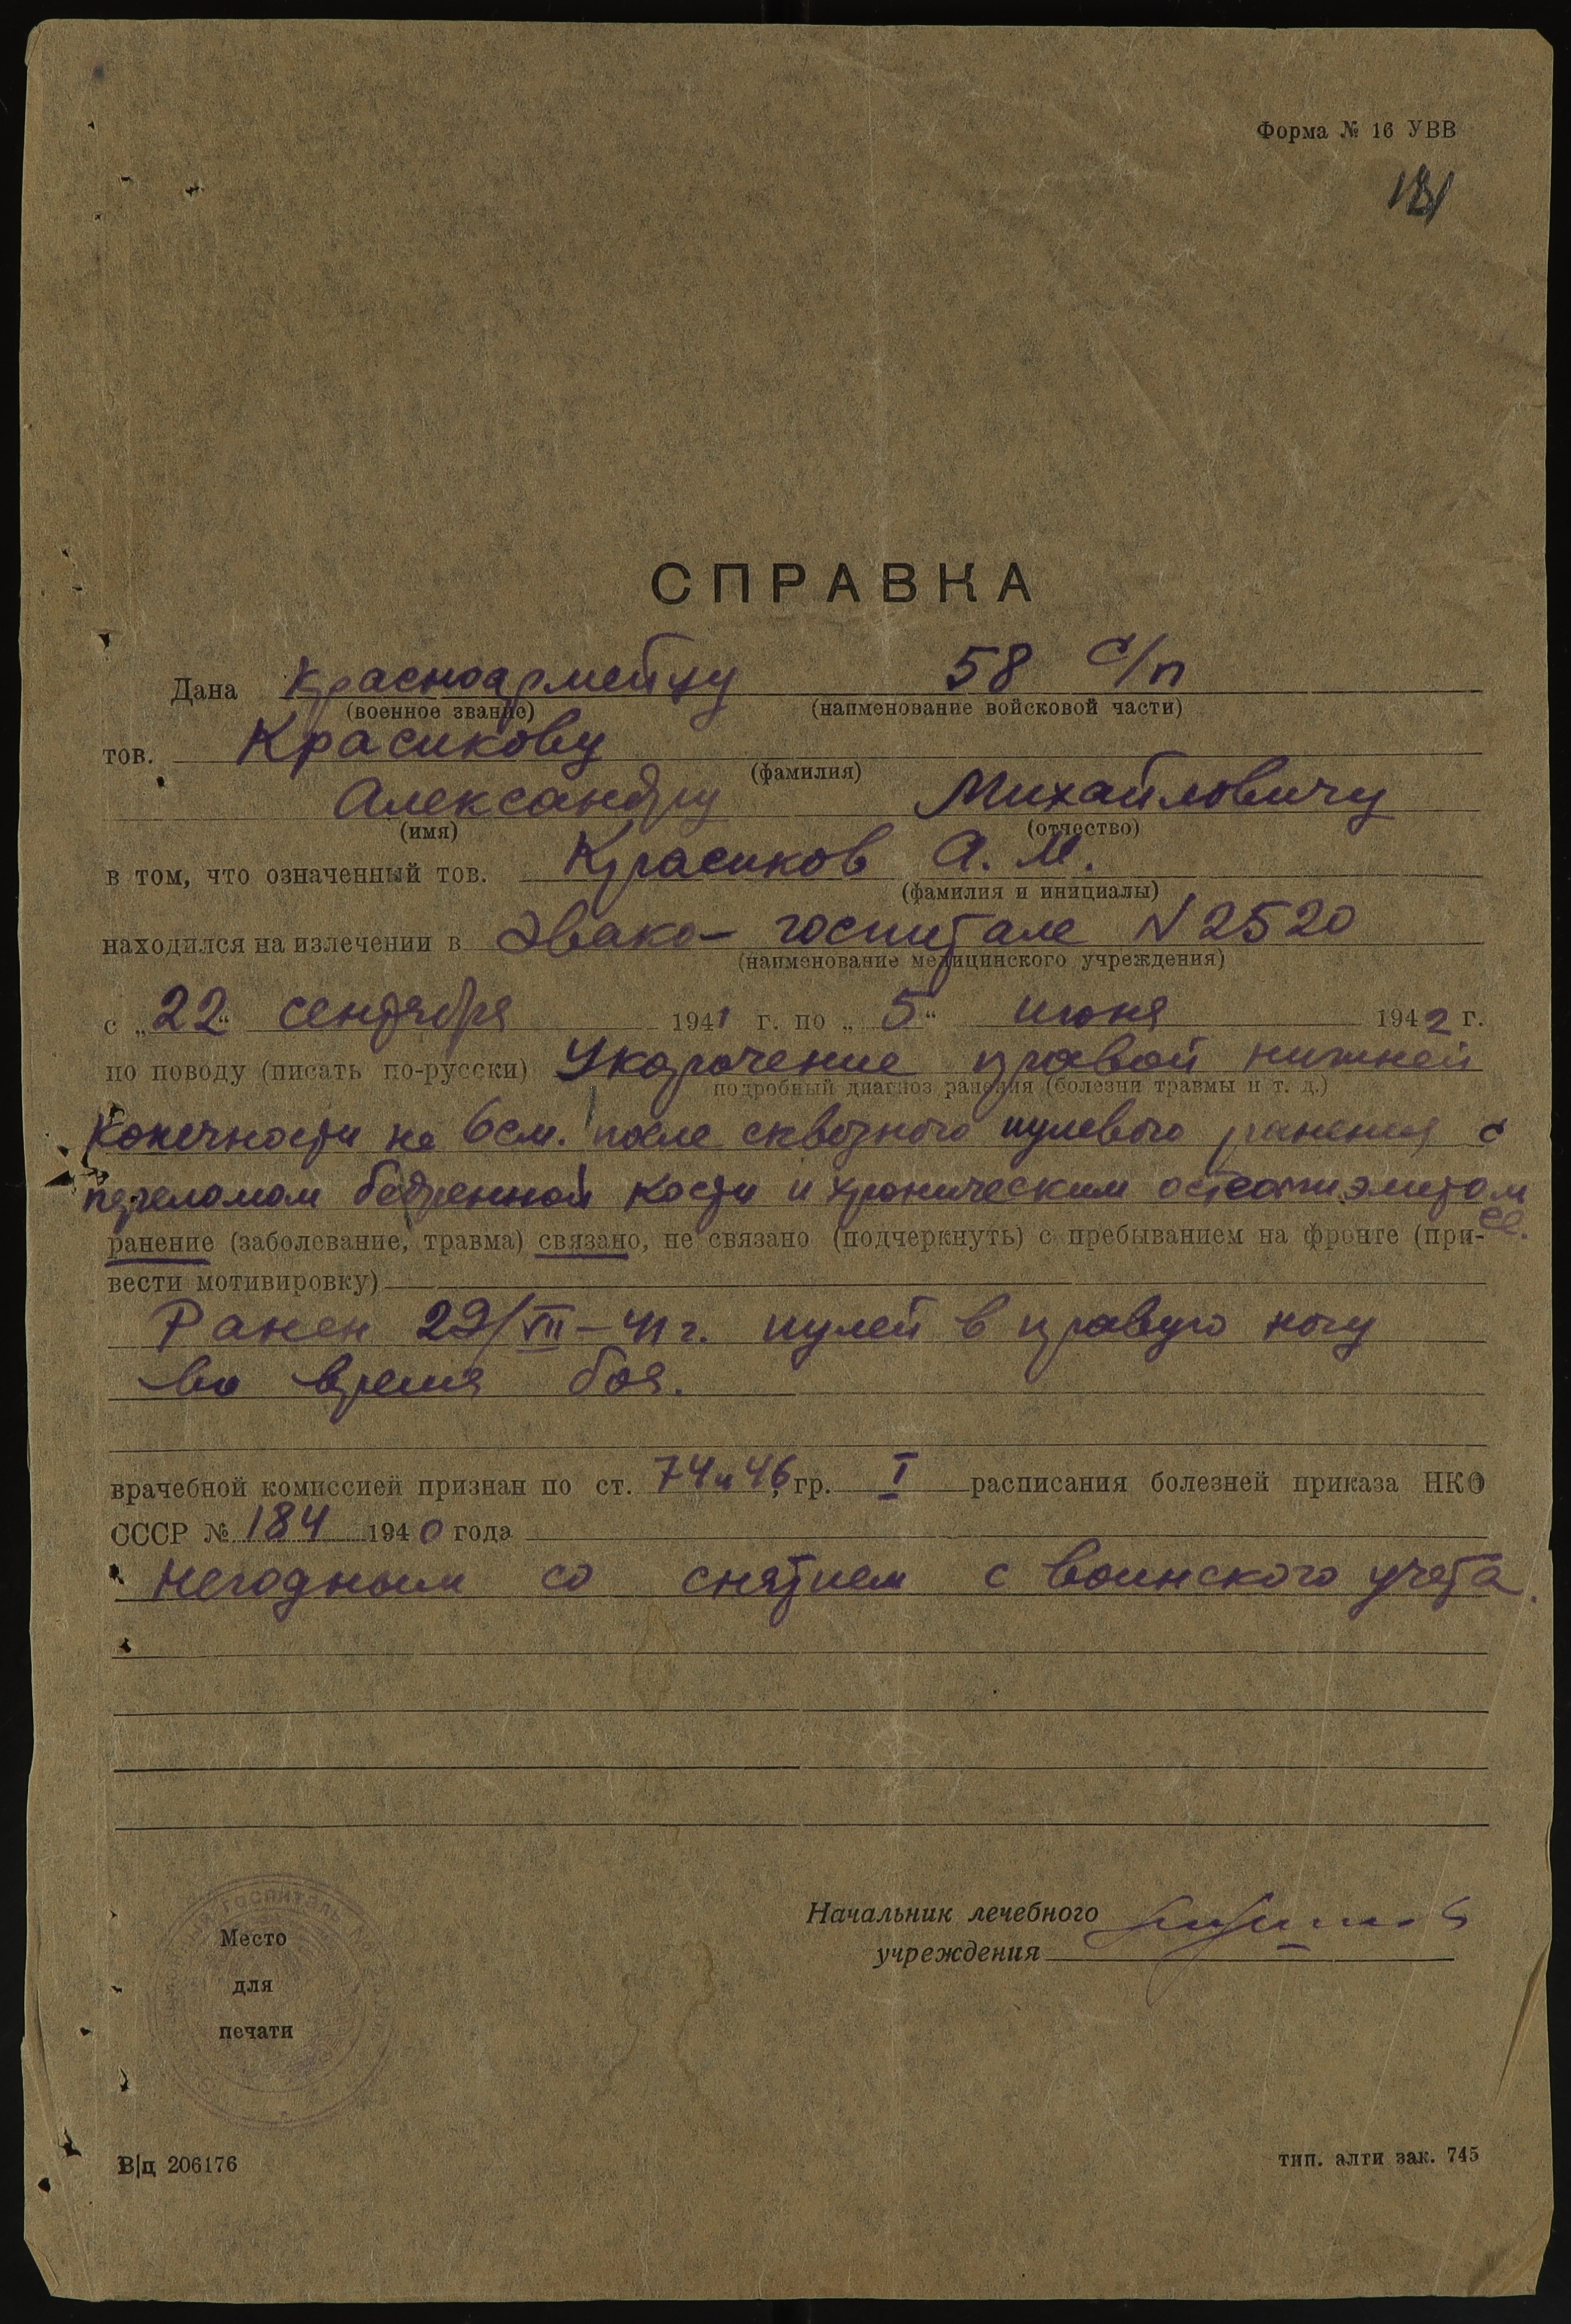 Форма № 16 УВВ
181
СПРАВКА
Дана красноармейцу 58 с/п
(военное звание) (наименование войсковой части)
тов. Красикову
(фамилия)
Александру Михайловичу
(имя) (отчество)
в том, что означенный тов. Красиков А. М.
(фамилия и инициалы)
находился на излечении в Эвако-госпитале N 2520
(наименование медицинского учреждения)
с „22“ сентября 1941 г. по „5“ июня 1942 г.
по поводу (писать по-русски) Укорочение правой нижней
подробный диагноз ранения (болезни травмы и т. д.)
конечности на 6 см. после сквозного пулевого ранения с
переломом бедренной кости и хроническим остеомиэлитом
ранение (заболевание, травма) связано, не связано (подчеркнуть) с пребыванием на фронте (при-
вести мотивировку)
Ранен 29/VII-41 г. пулей в правую ногу
во время боя.
врачебной комиссией признан по ст. 74 и 46, гр. I расписания болезней приказа НКО
СССР № 184 1940 года
негодным со снятием с воинского учета.
Начальник лечебного
учреждения
госпиталь
Место
для
печати
В|ц 206176
тип. алти зак. 745